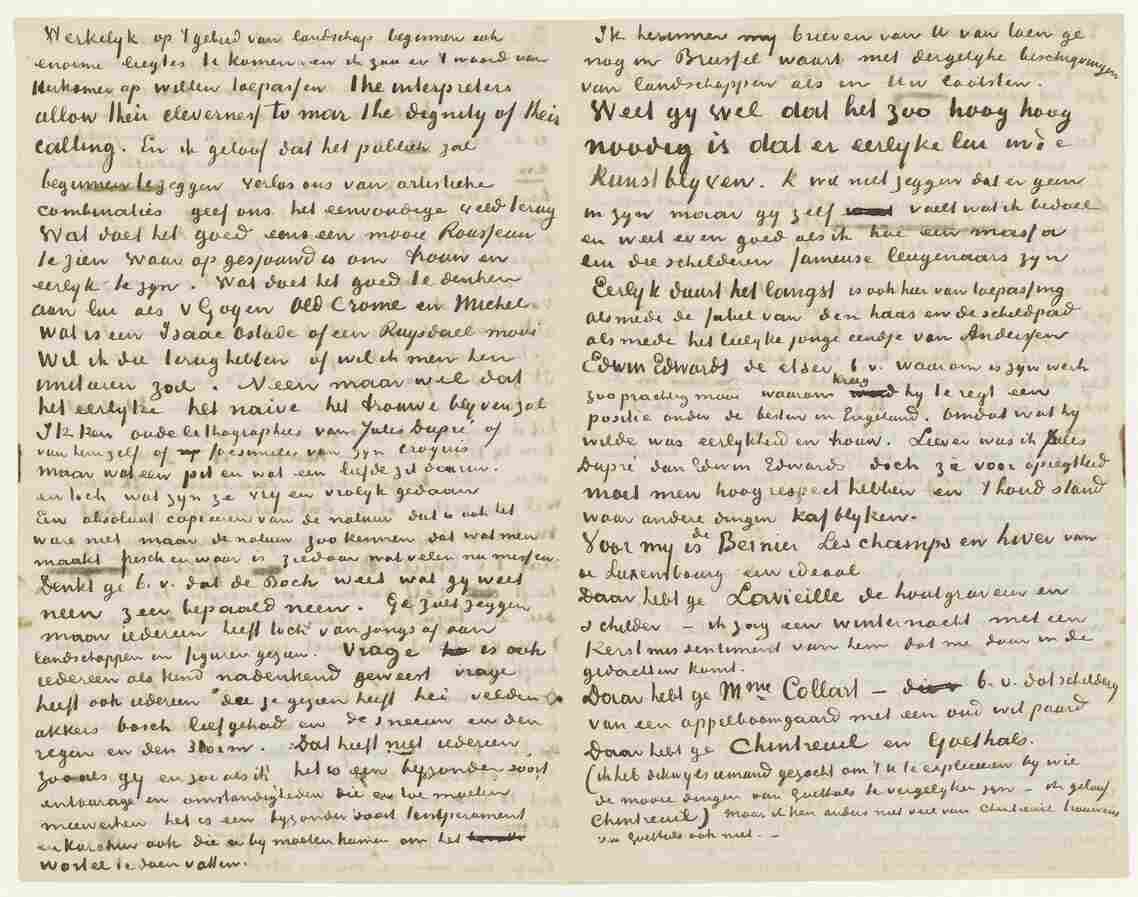 Werkelyk op 't gebied van landschap beginnen ook
enorme leegtes te komen en ik zou er 't woord van
Herkomer op willen toepassen the interpreters
allow their cleverness to mar the dignity of their
calling. En ik geloof dat het publiek zal
beginnen te zeggen verlos ons van artistieke
combinaties geef ons het eenvoudige veld terug
Wat doet het goed eens een mooie Rousseau
te zien waar op gesjouwd is om trouw en
eerlyk te zyn. Wat doet het goed te denken
aan lui als v Goyen Old Crome en Michel
Wat is een Isaac Ostade of een Ruysdael mooi
Wil ik die terug hebben of wil ik men hen
imiteren zal. Neen maar wel dat
het eerlyke het naive het trouwe blyven zal
Ik ken oude lithographies van Jules Dupré of
van hemzelf of facsimiles van zyn croquis
maar wat een pit en wat een liefde zit daarin.
en toch wat zyn ze vry en vrolyk gedaan
Een absoluut copieeren van de natuur dat is ook het
ware niet maar de natuur zoo kennen dat wat men
maakt frisch en waar is ziedaar wat velen nu missen.
Denkt ge b.v. dat de Bock weet wat gy weet
neen zeer bepaald neen. Ge zult zeggen
maar iedereen heeft toch van jongs af aan
landschappen en figuren gezien. Vrage is ook
iedereen als kind nadenkend geweest vrage
heeft ook iedereen die ze gezien heeft hei velden
akkers bosch liefgehad en de sneeuw en den
regen en den storm. Dat heeft niet iedereen
zooals gy en zooals ik het is een byzonder soort
entourage en omstandigheden die er toe moeten
meewerken het is een byzonder soort temperament
en karakter ook die er by moeten komen om het
wortel te doen vatten.
Ik herinner my brieven van U van toen ge
nog in Brussel waart met dergelyke beschryvingen
van landschappen als in Uw laatsten.
Weet gy wel dat het zoo hoog hoog
noodig is dat er eerlyke lui in de
Kunst blyven. Ik wil niet zeggen dat er geen
in zyn maar gy zelf voelt wat ik bedoel
en weet even goed als ik hoe een massa
lui die schilderen fameuse leugenaars zyn
Eerlyk duurt het langst is ook hier van toepassing
alsmede de fabel van den haas en de schildpad
alsmede het leelyke jonge eendje van Andersen
Edwin Edwards de etser b.v. waarom is zyn werk
zoo prachtig mooi waarom kreeg hy te regt een
positie onder de besten in Engeland. Omdat wat hy
wilde was eerlykheid en trouw. Liever was ik Jules
Dupré dan Edwin Edwards doch zie voor opregtheid
moet men hoog respect hebben en 't houd stand
waar andere dingen kaf blyken.
Voor my is de Bernier Les champs en hiver van
de Luxembourg een ideaal
Daar hebt ge Lavieille de houtgraveur en
schilder – ik zag een winternacht met een
Kerstmis sentiment van hem dat me daar in de
gedachten komt.
Daar hebt ge Mme Collart – b.v. dat schildery
van een appelboomgaard met een oud wit paard
Daar hebt ge Chintreuil en Goethals.
(ik heb dikwyls iemand gezocht om 't U te expliceeren by wie
de mooie dingen van Goethals te vergelyken zyn – ik geloof
Chintreuil) maar ik ken anders niet veel van Chintreuil trouwens
van Goethals ook niet. –